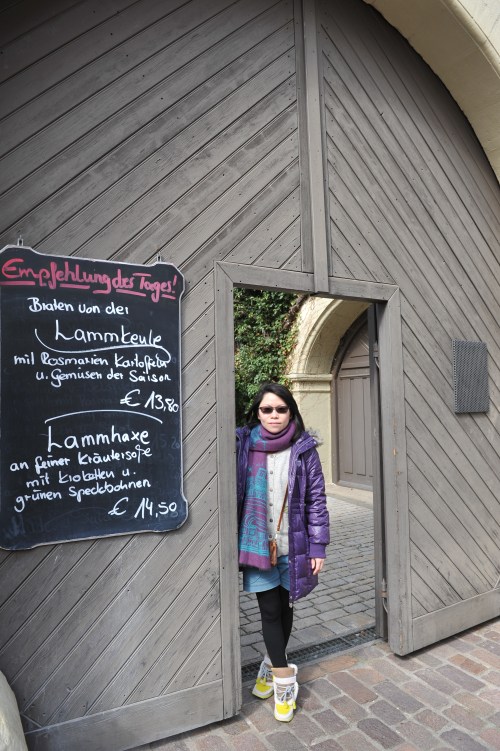 Empfehlung des Tages!
Braten von der
Lammkeule
mit Rosmarien Kartoffeln
u. Gemüsen der Saison
€ 13,80
Lammhaxe
an feiner Kräutersoße
mit Kroketten u.
grünen Speckbohnen
€ 14,50